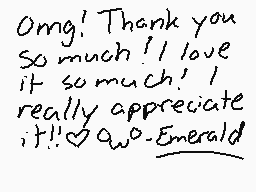 Omg! Thank you
so much! I love
it so much! I
really appreciate
it!!♡ OwO -Emerald